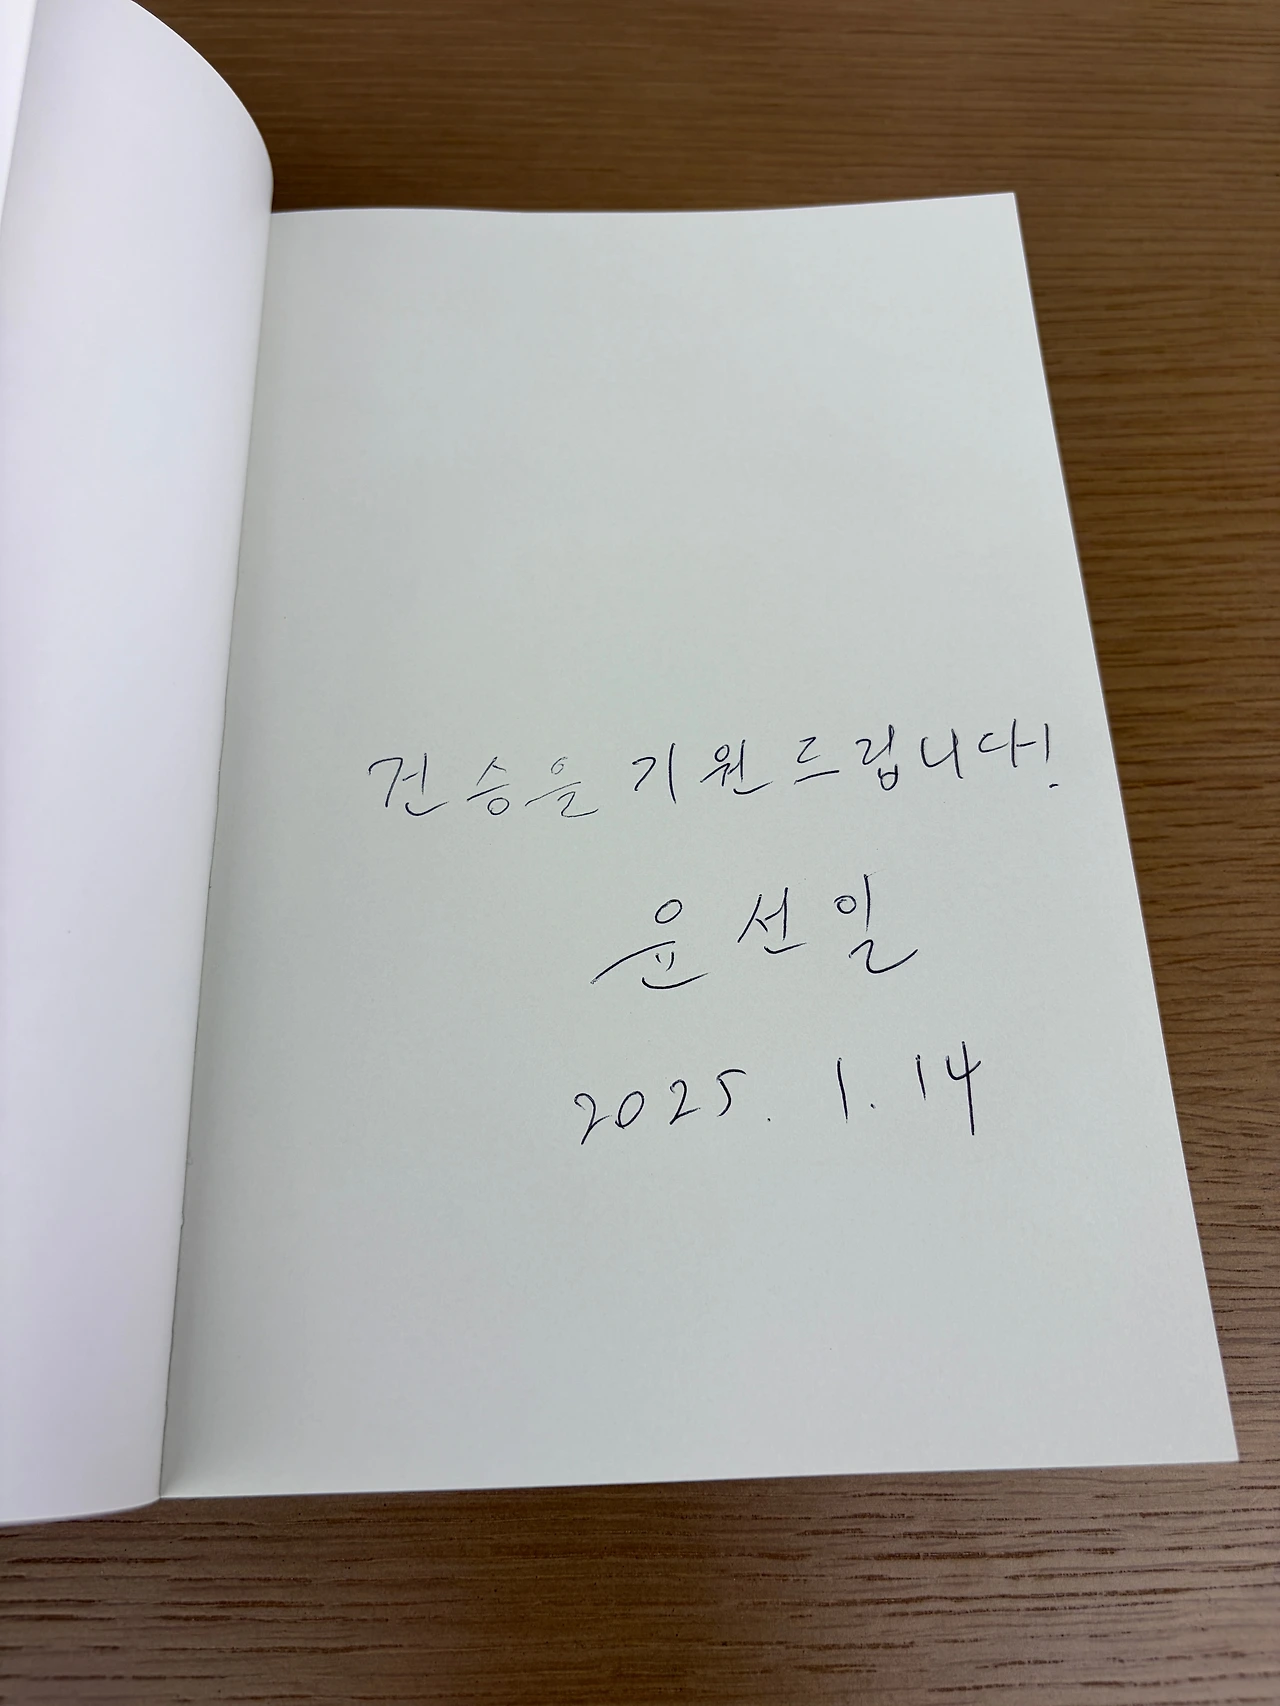 건승을 기원드립니다!
윤선일
2025. 1. 14